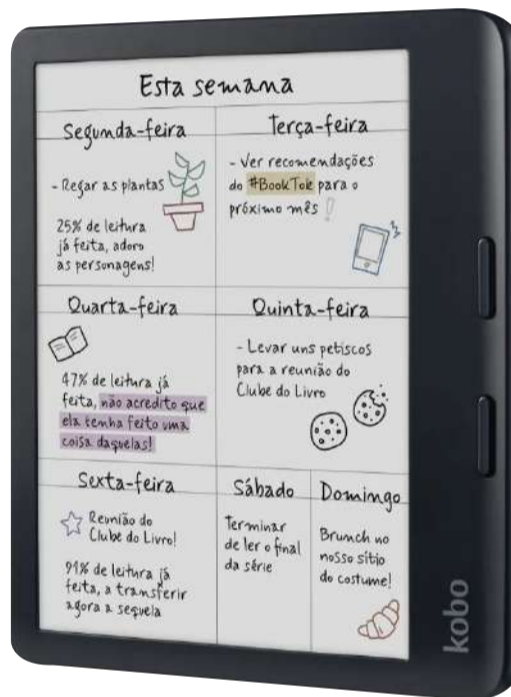 Esta semana
Segunda-feira
- Regar as plantas
25% de leitura
já feita, adoro
as personagens!
Terça-feira
- Ver recomendações
do #BookTok para o
próximo mês!
Quarta-feira
47% de leitura já
feita, não acredito que
ela tenha feito uma
coisa daquelas!
Quinta-feira
- Levar uns petiscos
para a reunião do
Clube do Livro
Sexta-feira
Reunião do
Clube do Livro!
91% de leitura já
feita, a transferir
agora a sequela
Sábado
Terminar
de ler o final
da série
Domingo
Brunch no
nosso sítio
do costume!
kobo